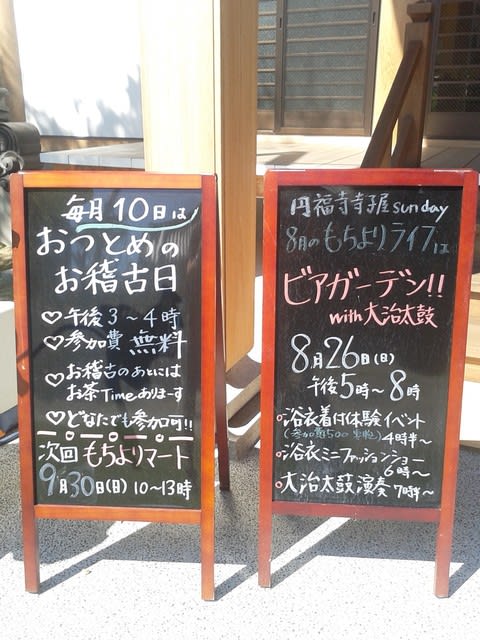 毎月10日は
おつとめの
お稽古日
♡午後3～4時
♡参加費 無料
♡お稽古のあとには
お茶Timeありまーす
♡どなたでも参加可!!
次回 もちよりマート
9月30日(日) 10～13時
円福寺寺子屋sunday
8月のもちよりライブは
ビアガーデン!!
with 大治太鼓
8月26日(日)
午後5時～8時
浴衣着付体験イベント
(参加費500 4時半～
浴衣ミニファッションショー
6時～
大治太鼓演奏 7時半～